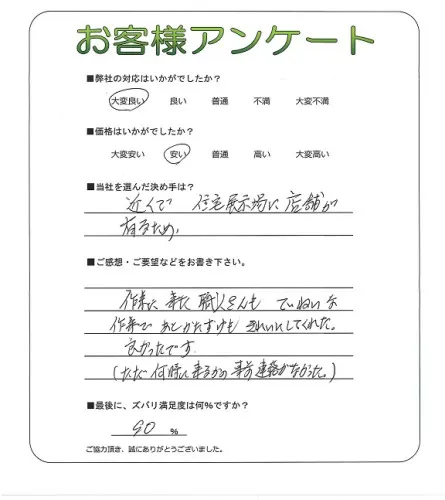 お客様アンケート
■弊社の対応はいかがでしたか？
大変良い 良い 普通 不満 大変不満
■価格はいかがでしたか？
大変安い 安い 普通 高い 大変高い
■当社を選んだ決め手は？
近くで 住宅展示場に店舗が
有るため、
■ご感想・ご要望などをお書き下さい。
作業に来た職人さんも ていねいな
作業で あとかたずけも きれいにしてくれた。
良かったです
(ただ何時に来るかの事前連絡がなかった。)
■最後に、ズバリ満足度は何%ですか？
90 %
ご協力頂き、誠にありがとうございました。